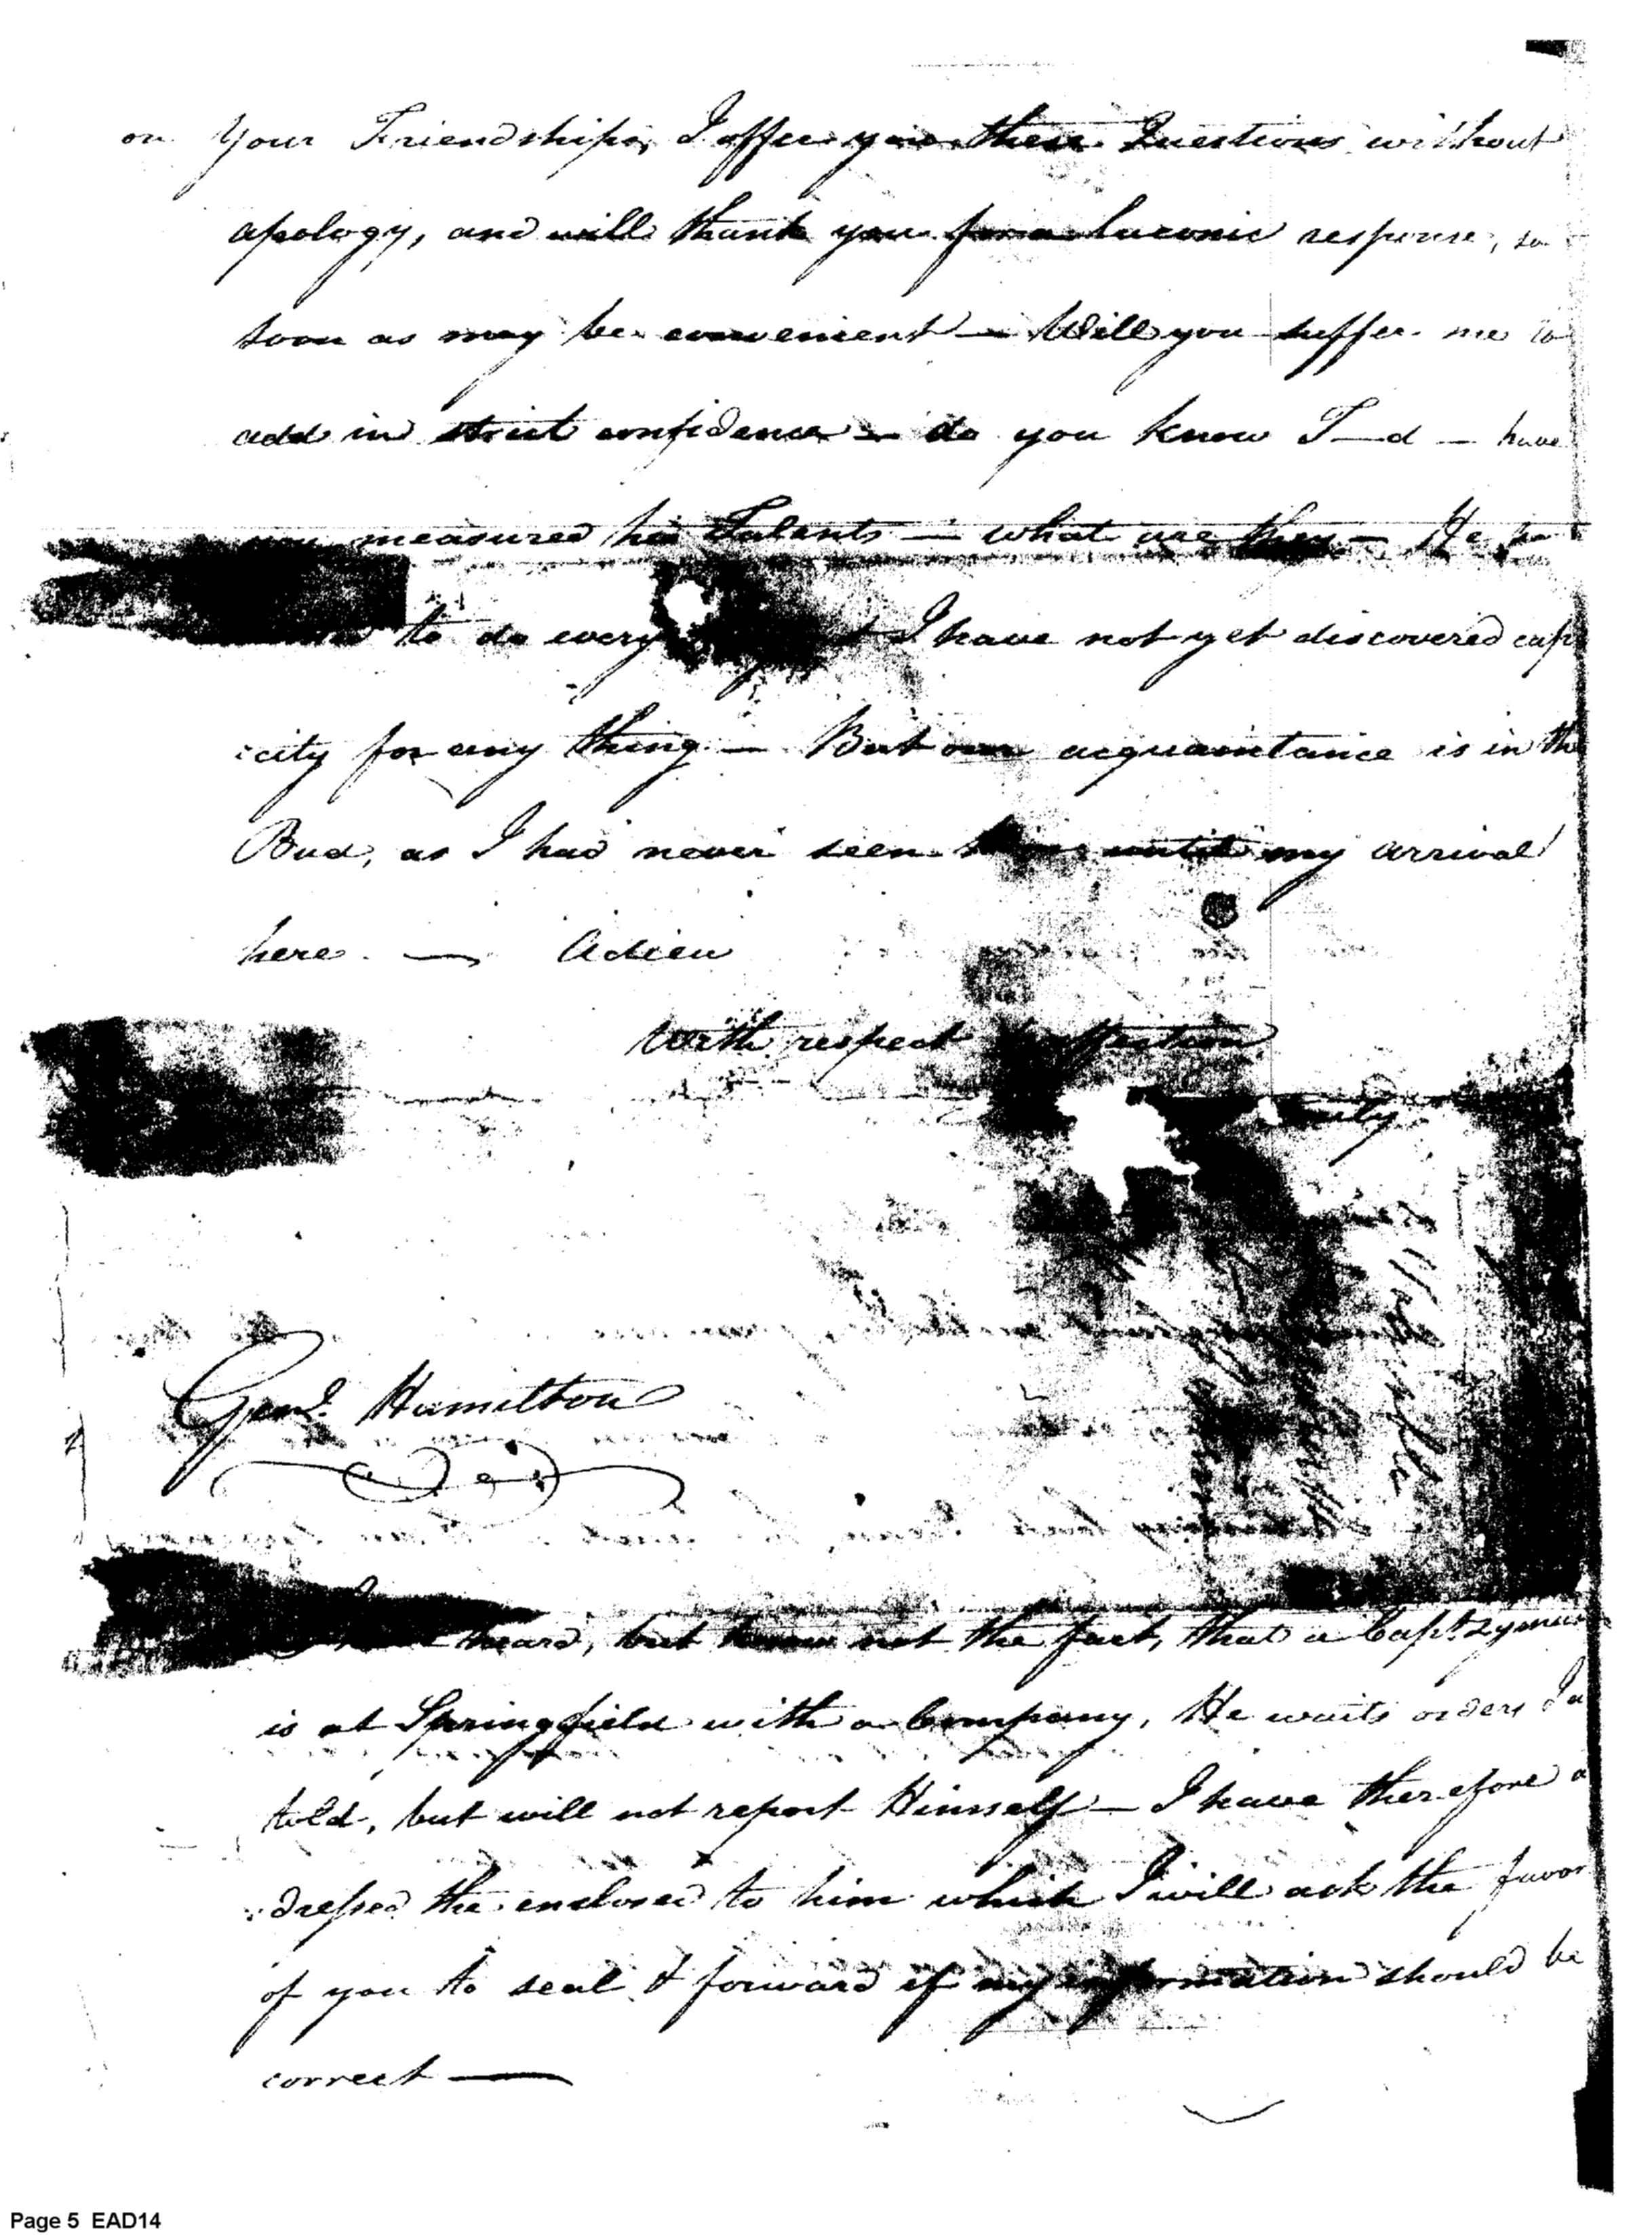 on Your Friendship, I offer you these Questions without
apology, and will thank you for a laconic response, so
soon as may be convenient — Will you suffer me to
add in strict confidence — do you know T—d — have
you measured his Talents — what are they — He
to do every I have not yet discovered capa
city for any thing — But our acquaintance is in the
Bud, as I had never seen him until my arrival
here. — Adieu
With respect & affection
truly
Genl. Hamilton
heard, but know not the fact, that a Capt. Lyman
is at Springfield with a Company, He waits orders Im
told, but will not report Himself — I have therefore a
dressed the enclosed to him which I will ask the favor
of you to seal & forward if my information should be
correct —
Page 5 EAD14